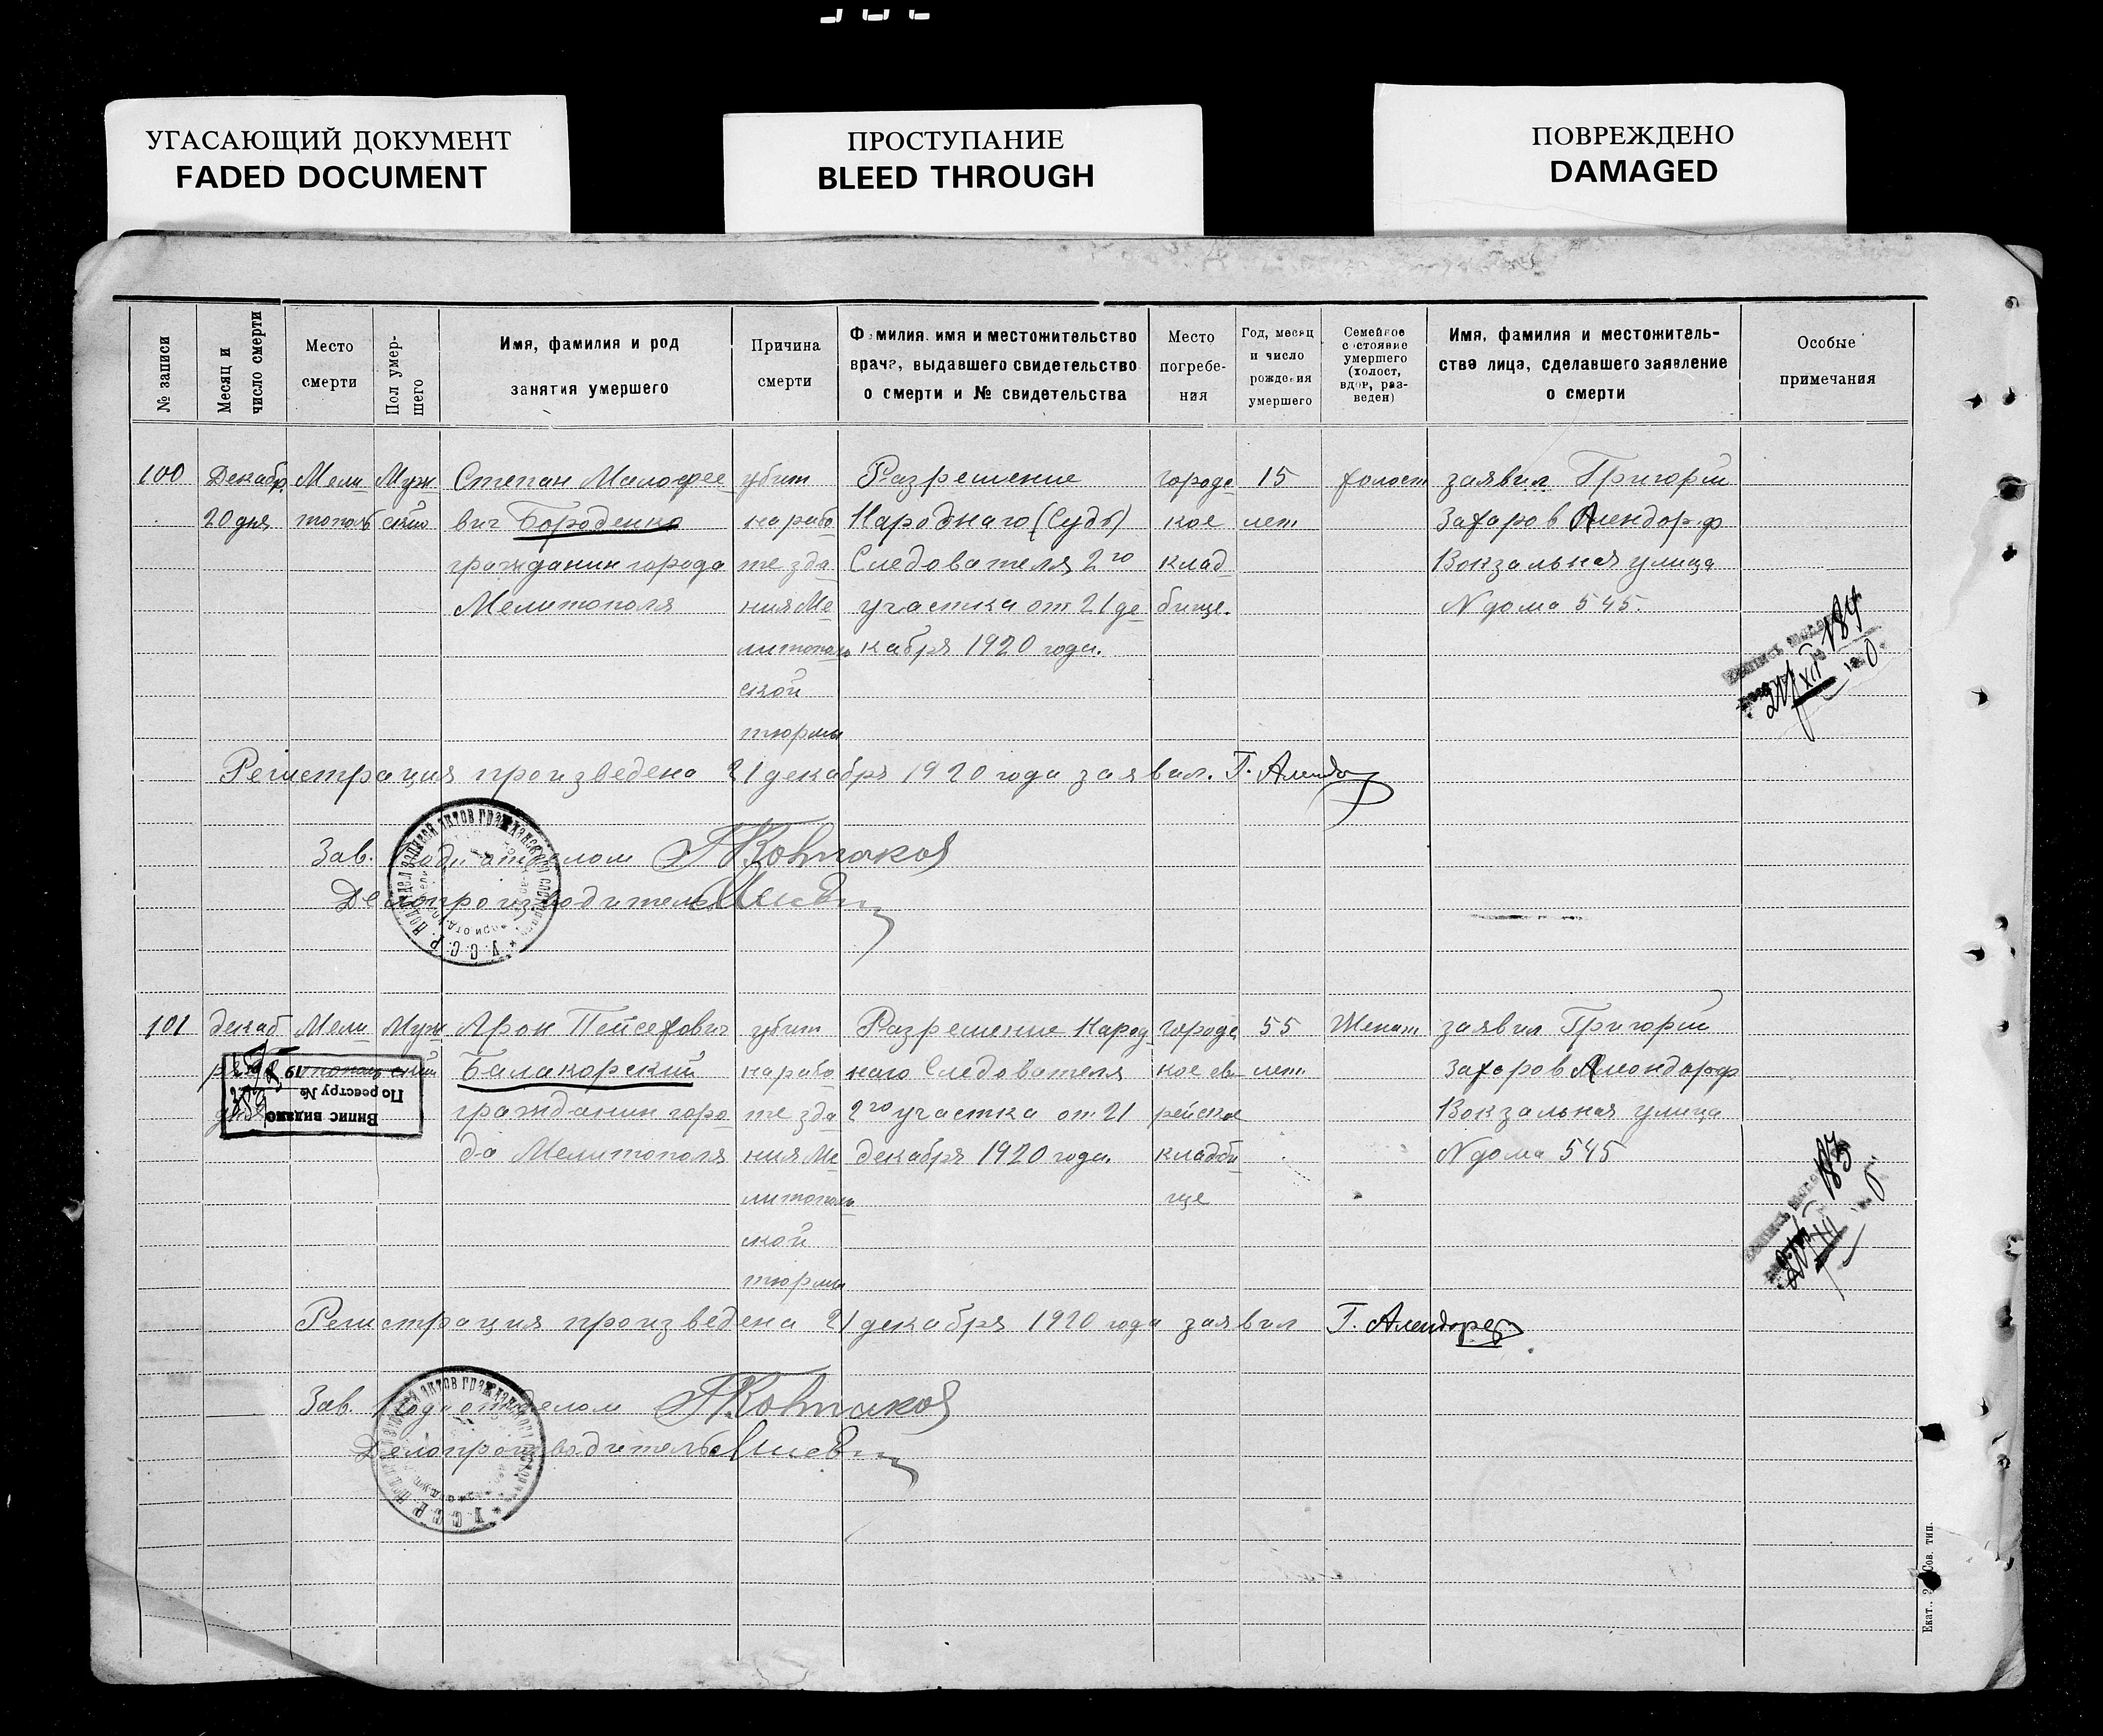 УГАСАЮЩИЙ ДОКУМЕНТ
FADED DOCUMENT
ПРОСТУПАНИЕ
BLEED THROUGH
ПОВРЕЖДЕНО
DAMAGED
№ записи
Месяц и
число смерти
Место
смерти
Пол умер-
шего
Имя, фамилия и род
занятия умершего
Причина
смерти
Фамилия, имя и местожительство
врача, выдавшего свидетельство
о смерти и № свидетельства
Место
погребе-
ния
Год, месяц
и число
рождения
умершего
Семейное
состояние
умершего
(холост,
вдов, раз-
веден)
Имя, фамилия и местожитель-
ства лица, сделавшего заявление
о смерти
Особые
примечания
100
Декабр.
20 дня
Мели
тополь
Муж
ской
Степан Малофее
вич Бороденко
гражданин города
Мелитополя
убит
на рабо
те зда
ния Ме
литополь
ской
тюрмы
Разрешение
Народнаго (Суды)
Следователя 2го
участка от 21 де
кабря 1920 года.
городс
кое
клад
бище.
15
лет
холост
заявил Григорий
Захаров Алендорф
Вокзальная улица
N дома 545.
184
Регистрация произведена 21 декабря 1920 года заявил. Г. Алендорф
Зав. Подотделом
Делопроизводитель
У.С.С.Р.
101
декаб
ря
дня
Мели
тополь
Муж
ской
Випис видано
По реестру №
19
Арон Пейсехович
Балакорский
гражданин горо
да Мелитополя
убит
на рабо
те зда
ния Ме
литополь
ской
тюрмы
Разрешение Народ
наго Следователя
2го участка от 21
декабря 1920 года.
городс
кое ев
рейское
кладби
ще
55
лет
Женат
заявил Григорий
Захаров Алендорф
Вокзальная улица
N дома 545
Регистрация произведена 21 декабря 1920 года заявил Г. Алендорф
Зав. Подотделом
Делопроизводитель
У.С.С.Р.
Сов. тип.